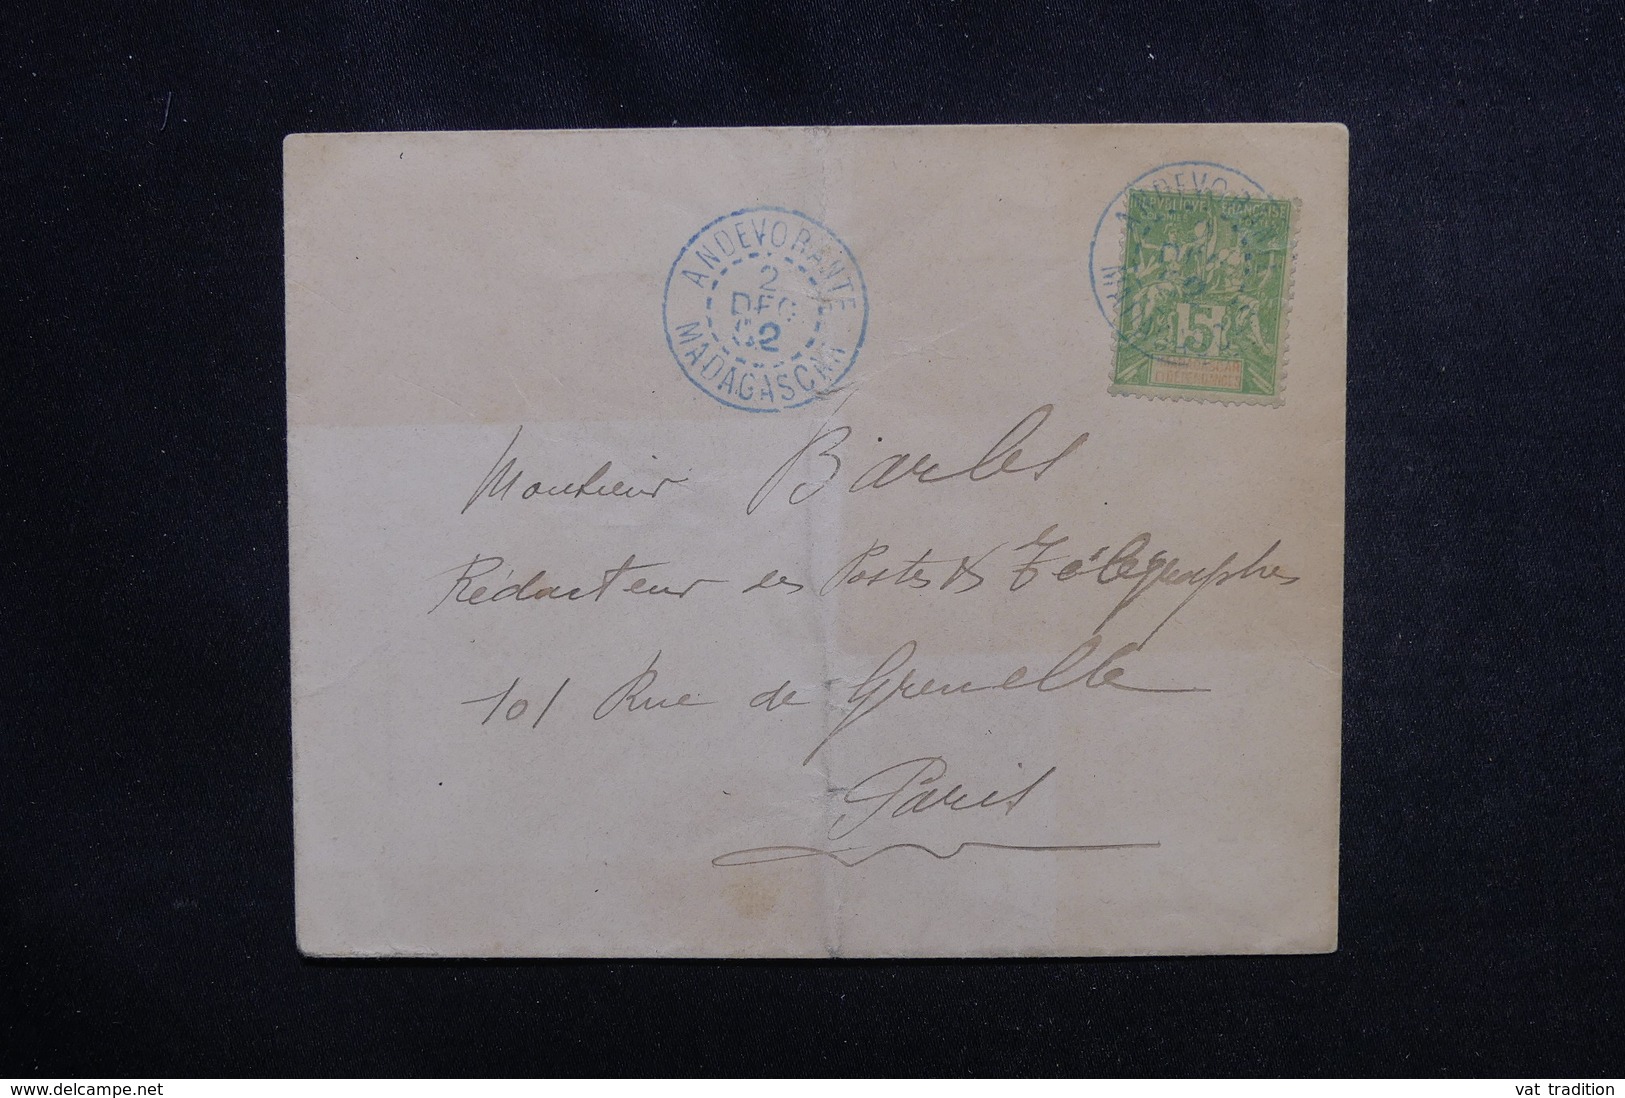 ANDEVORANTE
2
DEC
02
MADAGASCAR
ANDEVORANTE
REPUBLIQUE FRANÇAISE
5
Monsieur Barles
Rédacteur des Postes & Télégraphes
101 Rue de Grenelle
Paris
www.delcampe.net
vat tradition